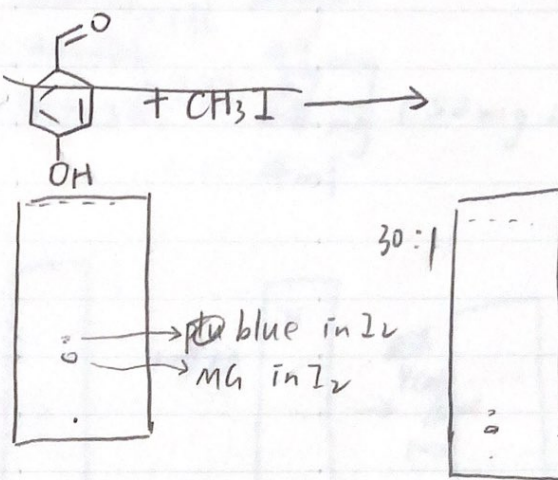 O
+ CH3 I
OH
30:1
blue in I2
MG in I2